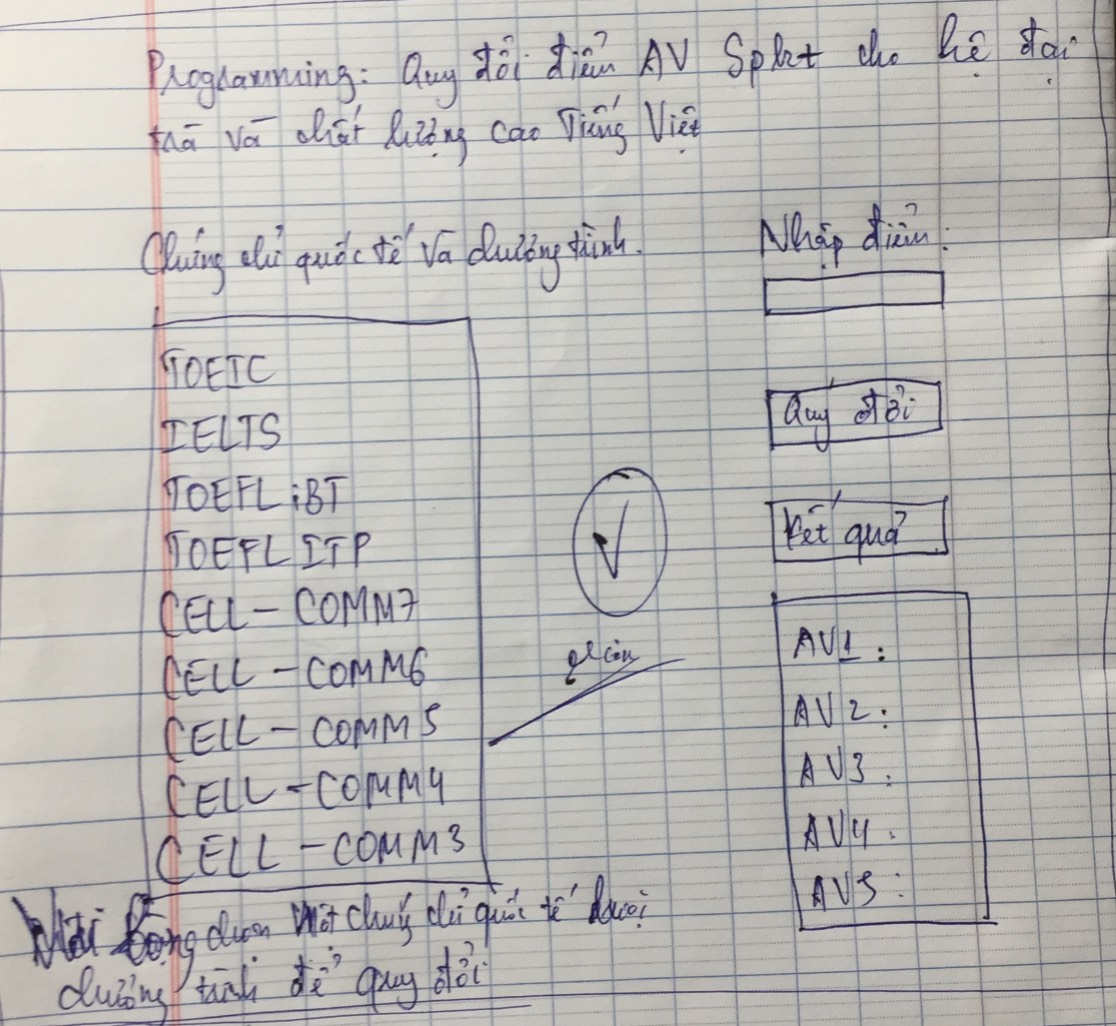 Programming: Quy đổi điểm AV Split cho hệ đại
trà và chất lượng cao Tiếng Việt
Chứng chỉ quốc tế và chương trình.
Nhập điểm:
TOEIC
IELTS
TOEFL iBT
TOEFL ITP
CELL - COMM7
CELL - COMM6
CELL - COMM5
CELL - COMM4
CELL - COMM3
Quy đổi
Kết quả
AV1:
AV2:
AV3:
AV4:
AV5:
chọn một chứng chỉ quốc tế
chương trình để quy đổi